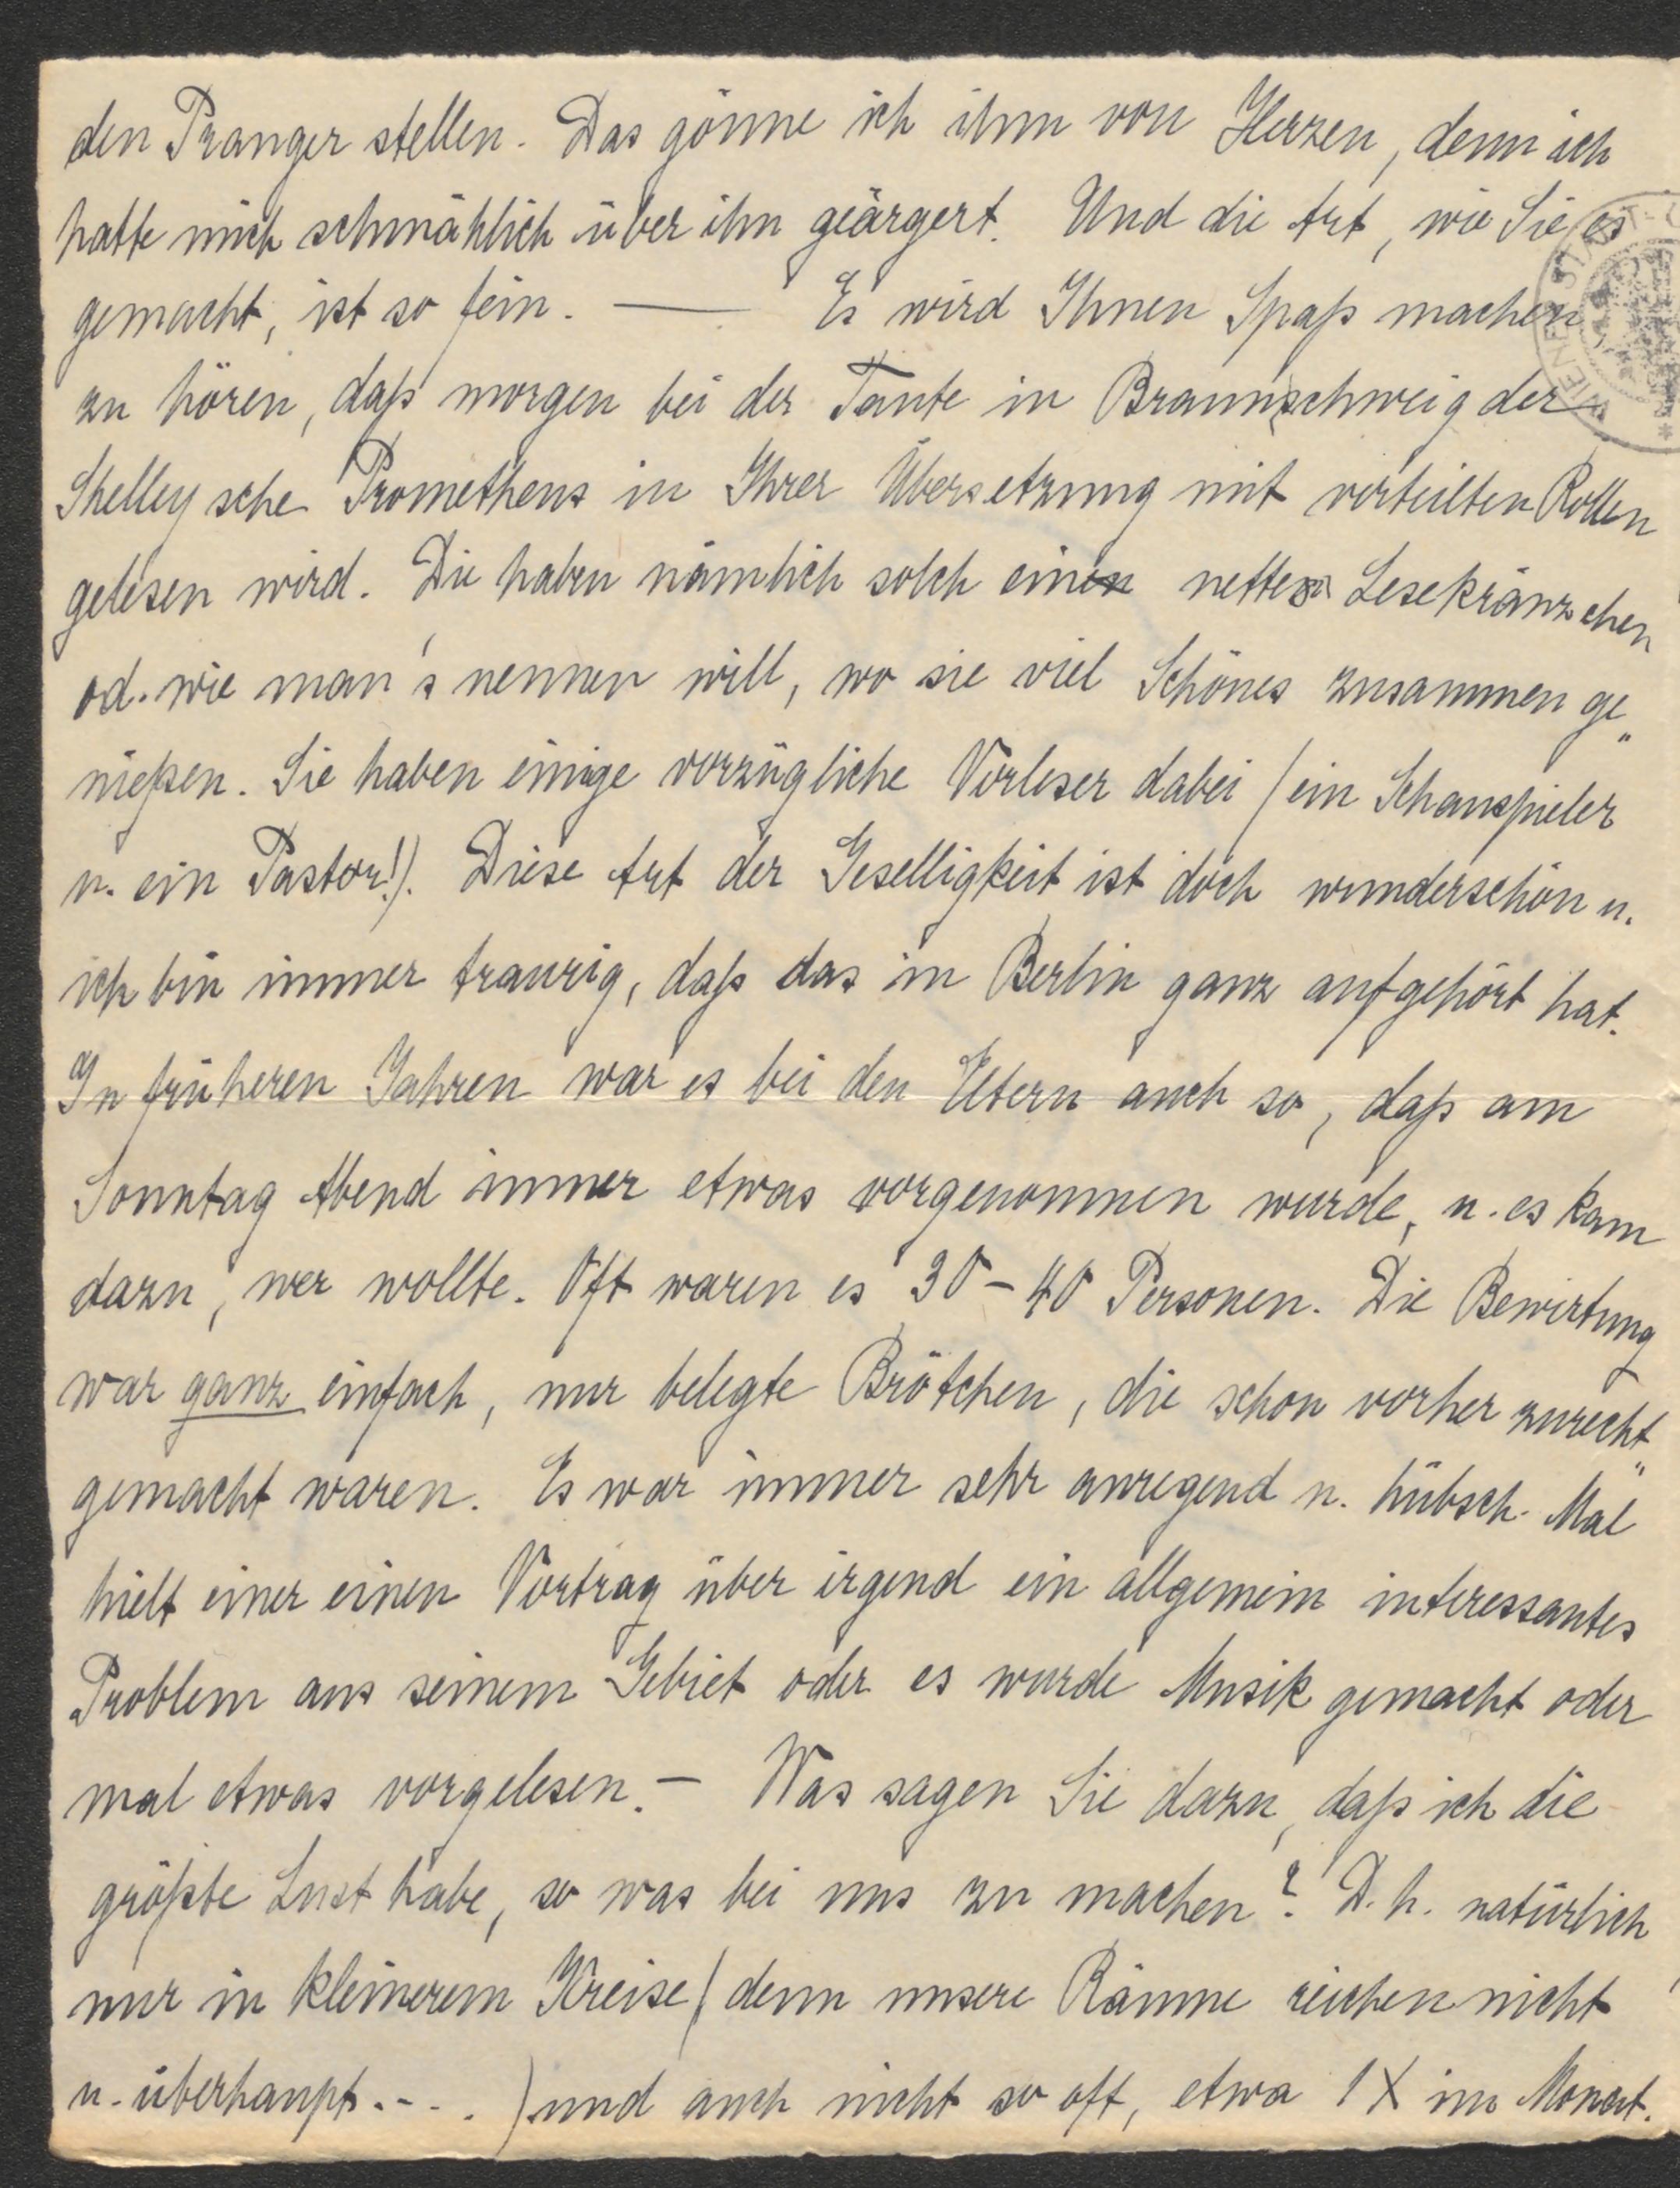 den Pranger stellen. Das gönne ich ihm von Herzen, denn ich
hatte mich schmählich über ihn geärgert. Und die Art, wie Sie es
gemacht, ist so fein. — Es wird Ihnen Spaß machen,
zu hören, daß morgen bei der Tante in Braunschweig der
Shelleysche Prometheus in Ihrer Übersetzung mit verteilten Rollen
gelesen wird. Die haben nämlich solch ein nettes Lesekränzchen
od. wie man's nennen will, wo sie viel Schönes zusammen ge„
nießen. Sie haben einige vorzügliche Vorleser dabei (ein Schauspieler
u. ein Pastor!). Diese Art der Geselligkeit ist doch wunderschön u.
ich bin immer traurig, daß das in Berlin ganz aufgehört hat.
In früheren Jahren war es bei den Eltern auch so, daß am
Sonntag Abend immer etwas vorgenommen wurde, u. es kam
dazu, wer wollte. Oft waren es 30-40 Personen. Die Bewirtung
war ganz einfach, nur belegte Brötchen, die schon vorher zurecht„
gemacht waren. Es war immer sehr anregend u. hübsch. Mal
hielt einer einen Vortrag über irgend ein allgemein interessantes
Problem aus seinem Gebiet oder es wurde Musik gemacht oder
mal etwas vorgelesen. – Was sagen Sie dazu, daß ich die
größte Lust habe, so was bei uns zu machen? D. h. natürlich
nur in kleinerem Kreise (denn unsere Räume reichen nicht
u. überhaupt....) und auch nicht so oft, etwa 1 X im Monat.
WIENER STADT-